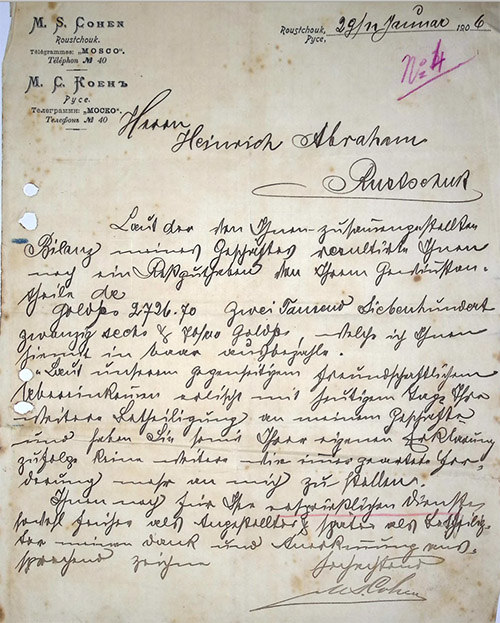 M. S. COHEN
Roustchouk.
Télégrammes: „MOSCO"
Téléphon № 40
М. С. КОЕНЪ
Русе.
Телеграмми: „МОСКО".
Телефонъ № 40
Roustchouk, Русе, 29/11 Januar 1906
No 4
Herrn
Heinrich Abraham
Rustschuk
Laut der von Ihnen zusammengestellten
Bilanz meines Geschäftes resultirte Ihnen
noch ein Restguthaben von Ihrem Gewinnstan-
theile de
Goldfcs 2726.70 Zwei Tausend Siebenhundert
zwanzig sechs & 70/100 Goldfcs, welche ich Ihnen
hiemit in baar ausbezahle.
Laut unserem gegenseitigem freundschaftlichem
Uebereinkommen erlischt mit heutigem Tage Ihre
weitere Betheiligung an meinem Geschäfte
und haben Sie somit Ihrer eigenen Erklärung
zufolge keine weitere wie immer geartete For-
derung mehr an mich zu stellen.
Ihnen noch für Ihre erspriesslichen Dienste,
sowohl früher als Angestellter & später als Betheilig-
ter meinen Dank und Anerkennung aus-
sprechend zeichne
hochachtend
M S Cohen